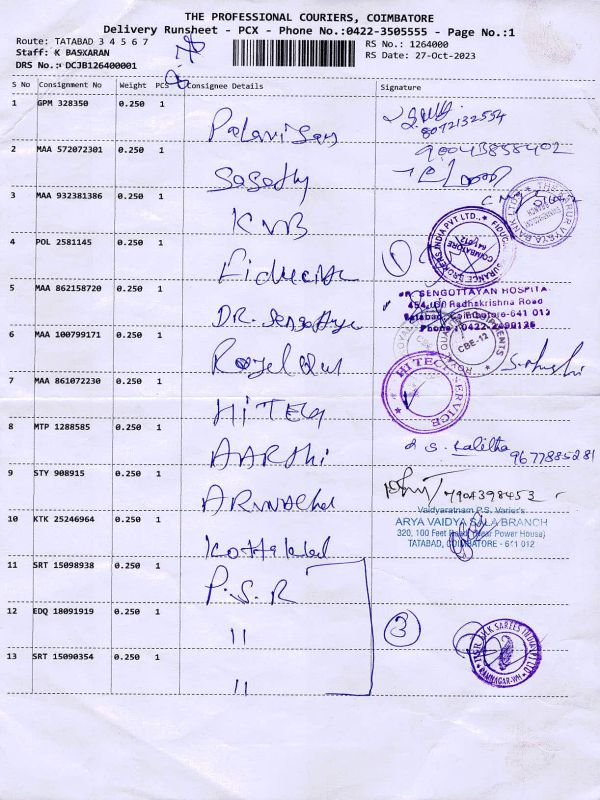 THE PROFESSIONAL COURIERS, COIMBATORE
Delivery Runsheet - PCX - Phone No.:0422-3505555 - Page No.:1
Route: TATABAD 3 4 5 6 7
RS No.: 1264000
Staff: K BASKARAN
RS Date: 27-Oct-2023
DRS No.: DCJB126400001
S No Consignment No Weight PCS Consignee Details Signature
1 GPM 328350 0.250 1
8072132554
2 MAA 572072301 0.250 1
3 MAA 932381386 0.250 1 KVB
4 POL 2581145 0.250 1 1
COIMBATORE
641 012
5 MAA 862158720 0.250 1 DR.
DR. SENGOTTAYAN HOSPITA
Radhakrishna Road
Tatabad, Coimbatore-641 012
Phone: 0422-2499126
6 MAA 100799171 0.250 1
CBE-12
7 MAA 861072230 0.250 1 HITEC
HI TECH SERVICE
8 MTP 1288585 0.250 1 AARTHI S. Lalitha
9677885281
9 STY 908915 0.250 1 7904398453
Vaidyaratnam P.S. Varier's
ARYA VAIDYA SALA BRANCH
320, 100 Feet Road (Near Power House)
TATABAD, COIMBATORE - 641 012
10 KTK 25246964 0.250 1 Kottakkal
11 SRT 15098938 0.250 1 P.S.R
12 EDQ 18091919 0.250 1 11 3
13 SRT 15090354 0.250 1 11
RAMNAGAR